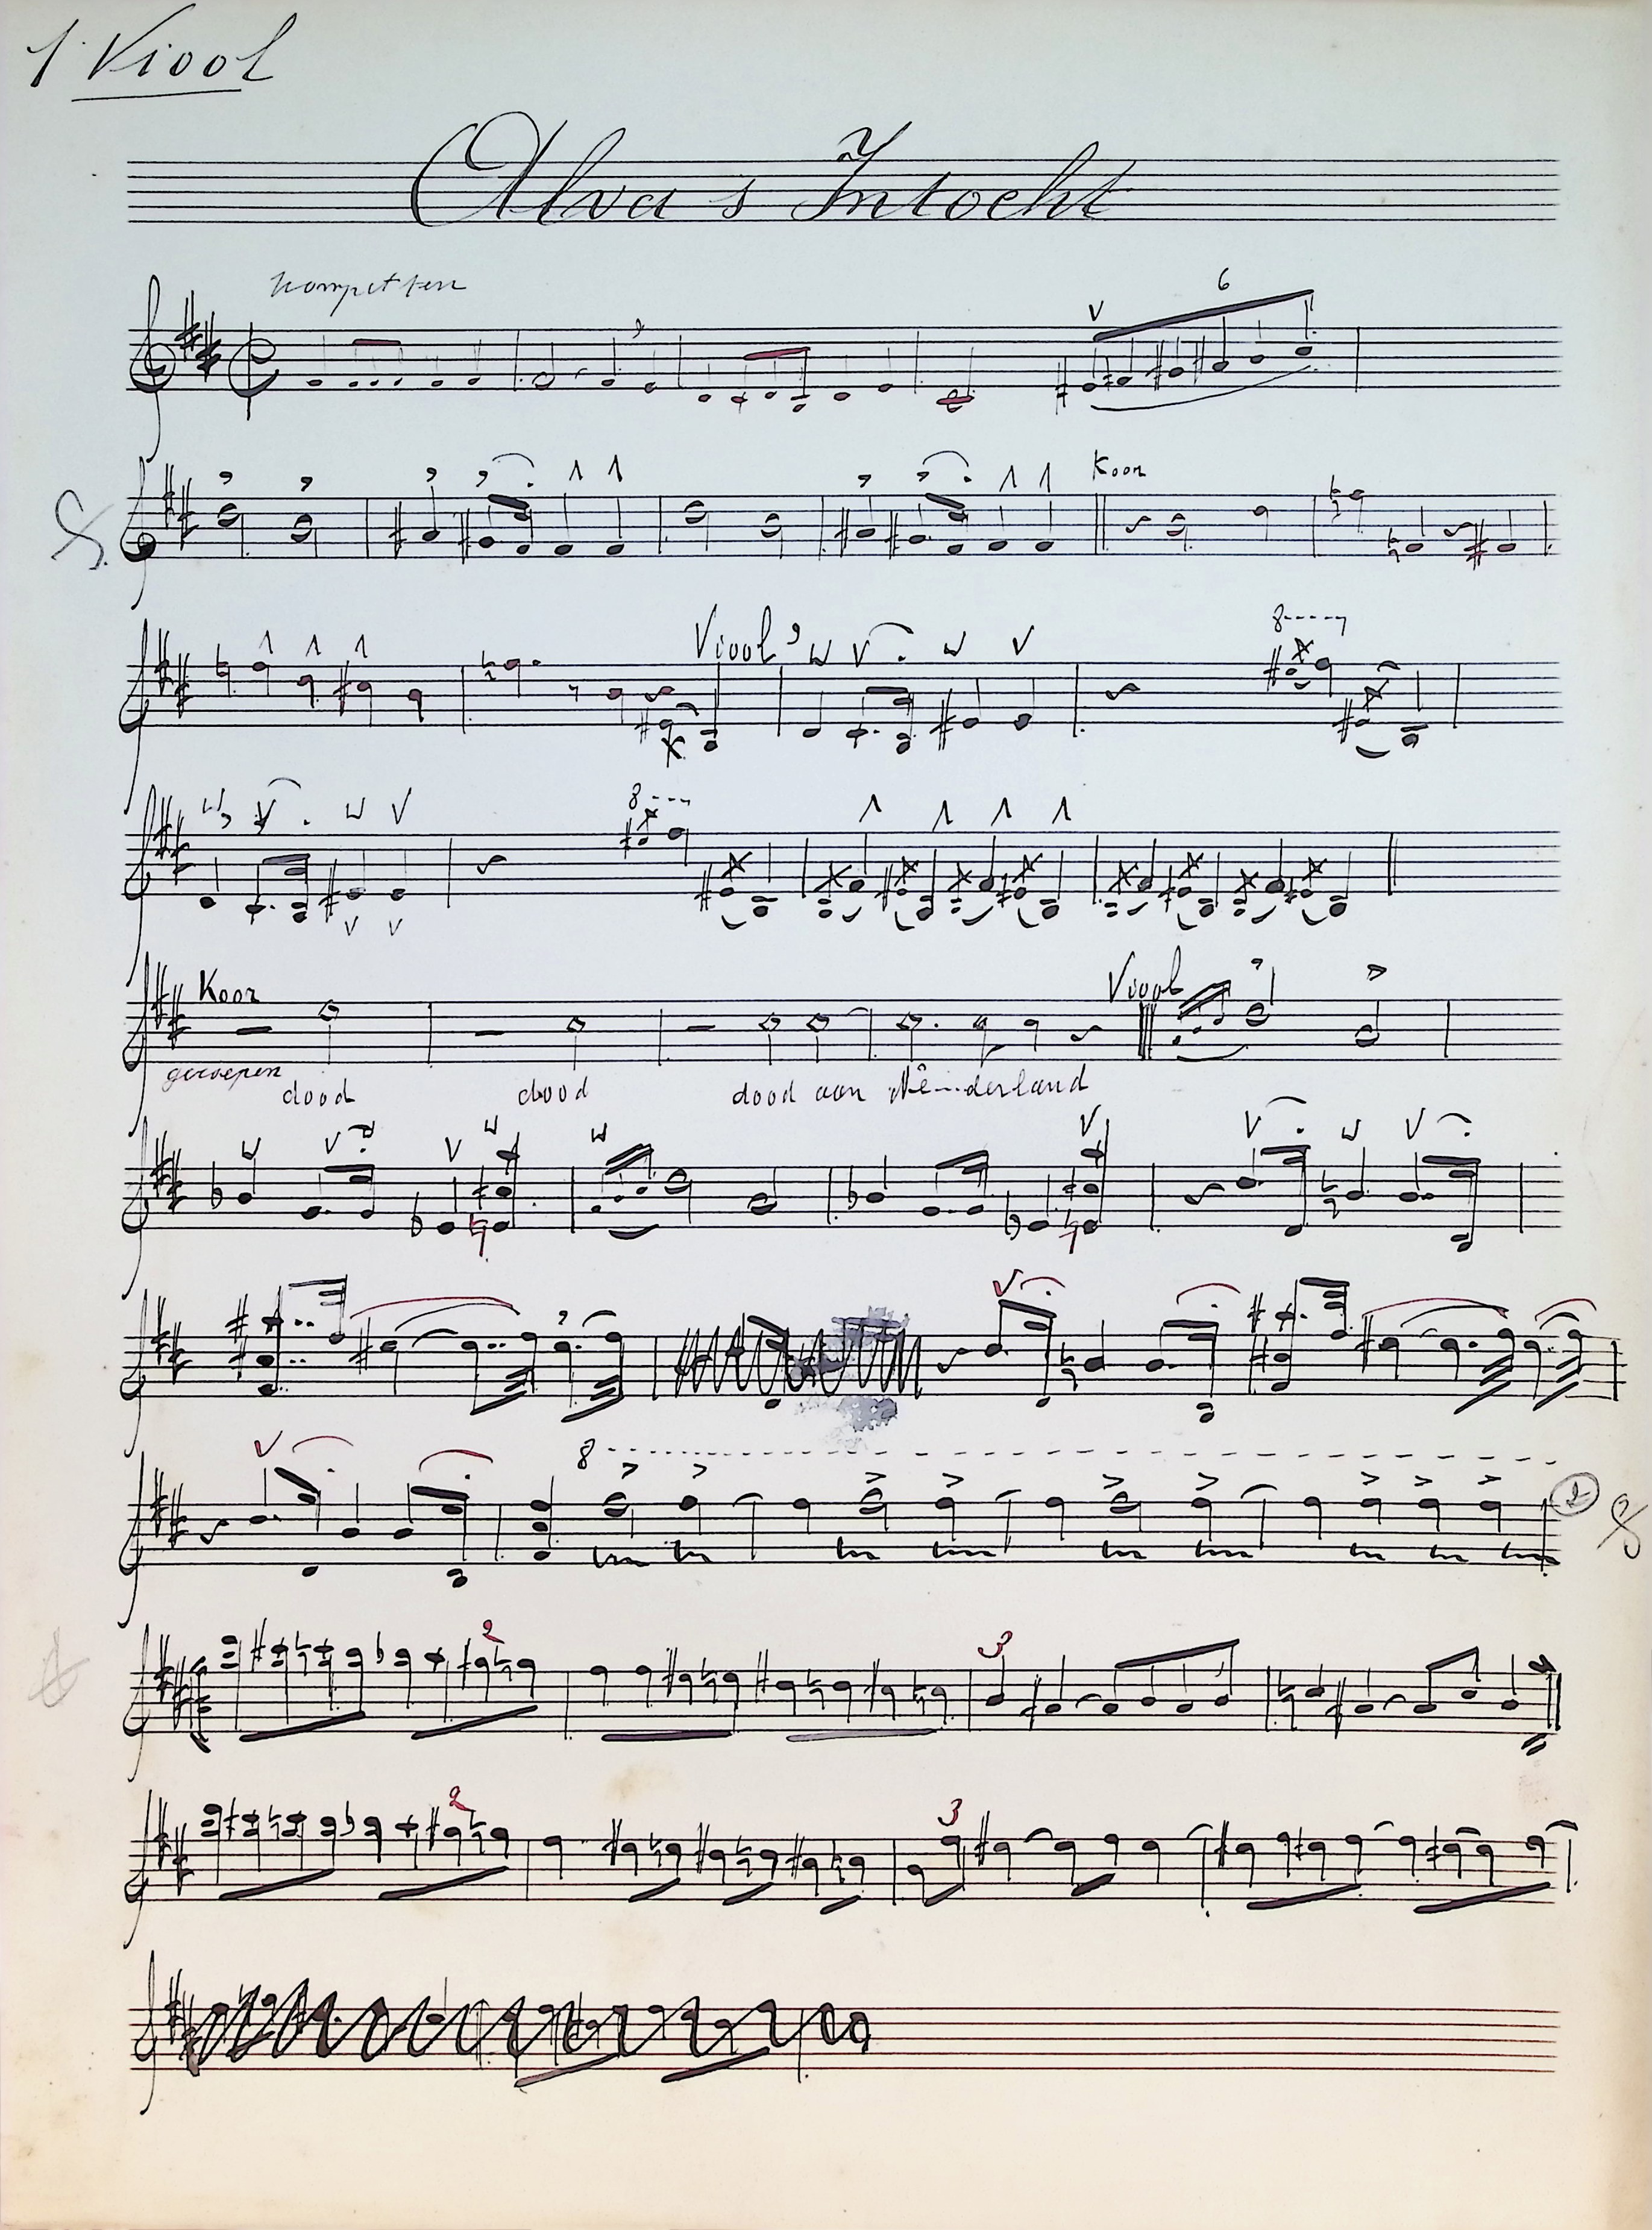 1 Viool
Alva's Intocht
trompetten
6
Koor
Viool
8
8
Koor
Viool
geroepen
dood dood dood aan Nê-derland
8
2
3
2
3